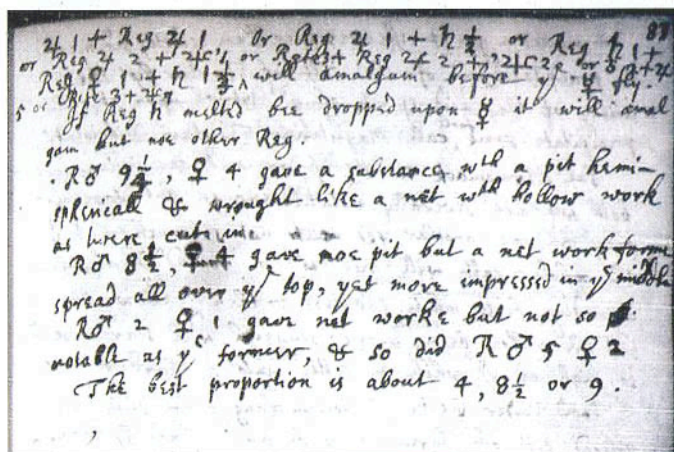 ♃ 1 + Reg ♃ 1 Or Reg ♃ 1 + ♄ 1/2 or Reg ♄ 1 +
or Reg ♃ 2 + ♃ Reg ♃ 2 +
Reg ♀ 1 + ♄ 1 will amalgam before yᵉ ☿ fly.
5 or 3 + ♃
If Reg ♄ melted bee dropped upon ☿ it will amal
gam but noe other Reg.
. R♂ 9 1/4, ♀ 4 gave a substance wᵗʰ a pit hemi-
sphericall & wrought like a net wᵗʰ hollow work
as twere cut in
R♂ 8 1/2, ♀ 4 gave noe pit but a net work forme
spread all over yᵉ top, yet more impressed in yᵉ middle
R♂ 2 ♀ 1 gave net worke but not so
notable as yᵉ former, & so did R♂ 5 ♀ 2
The best proportion is about 4, 8 1/2 or 9.